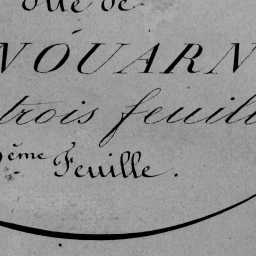 de
NOUARN
trois feuill
ème Feuille.